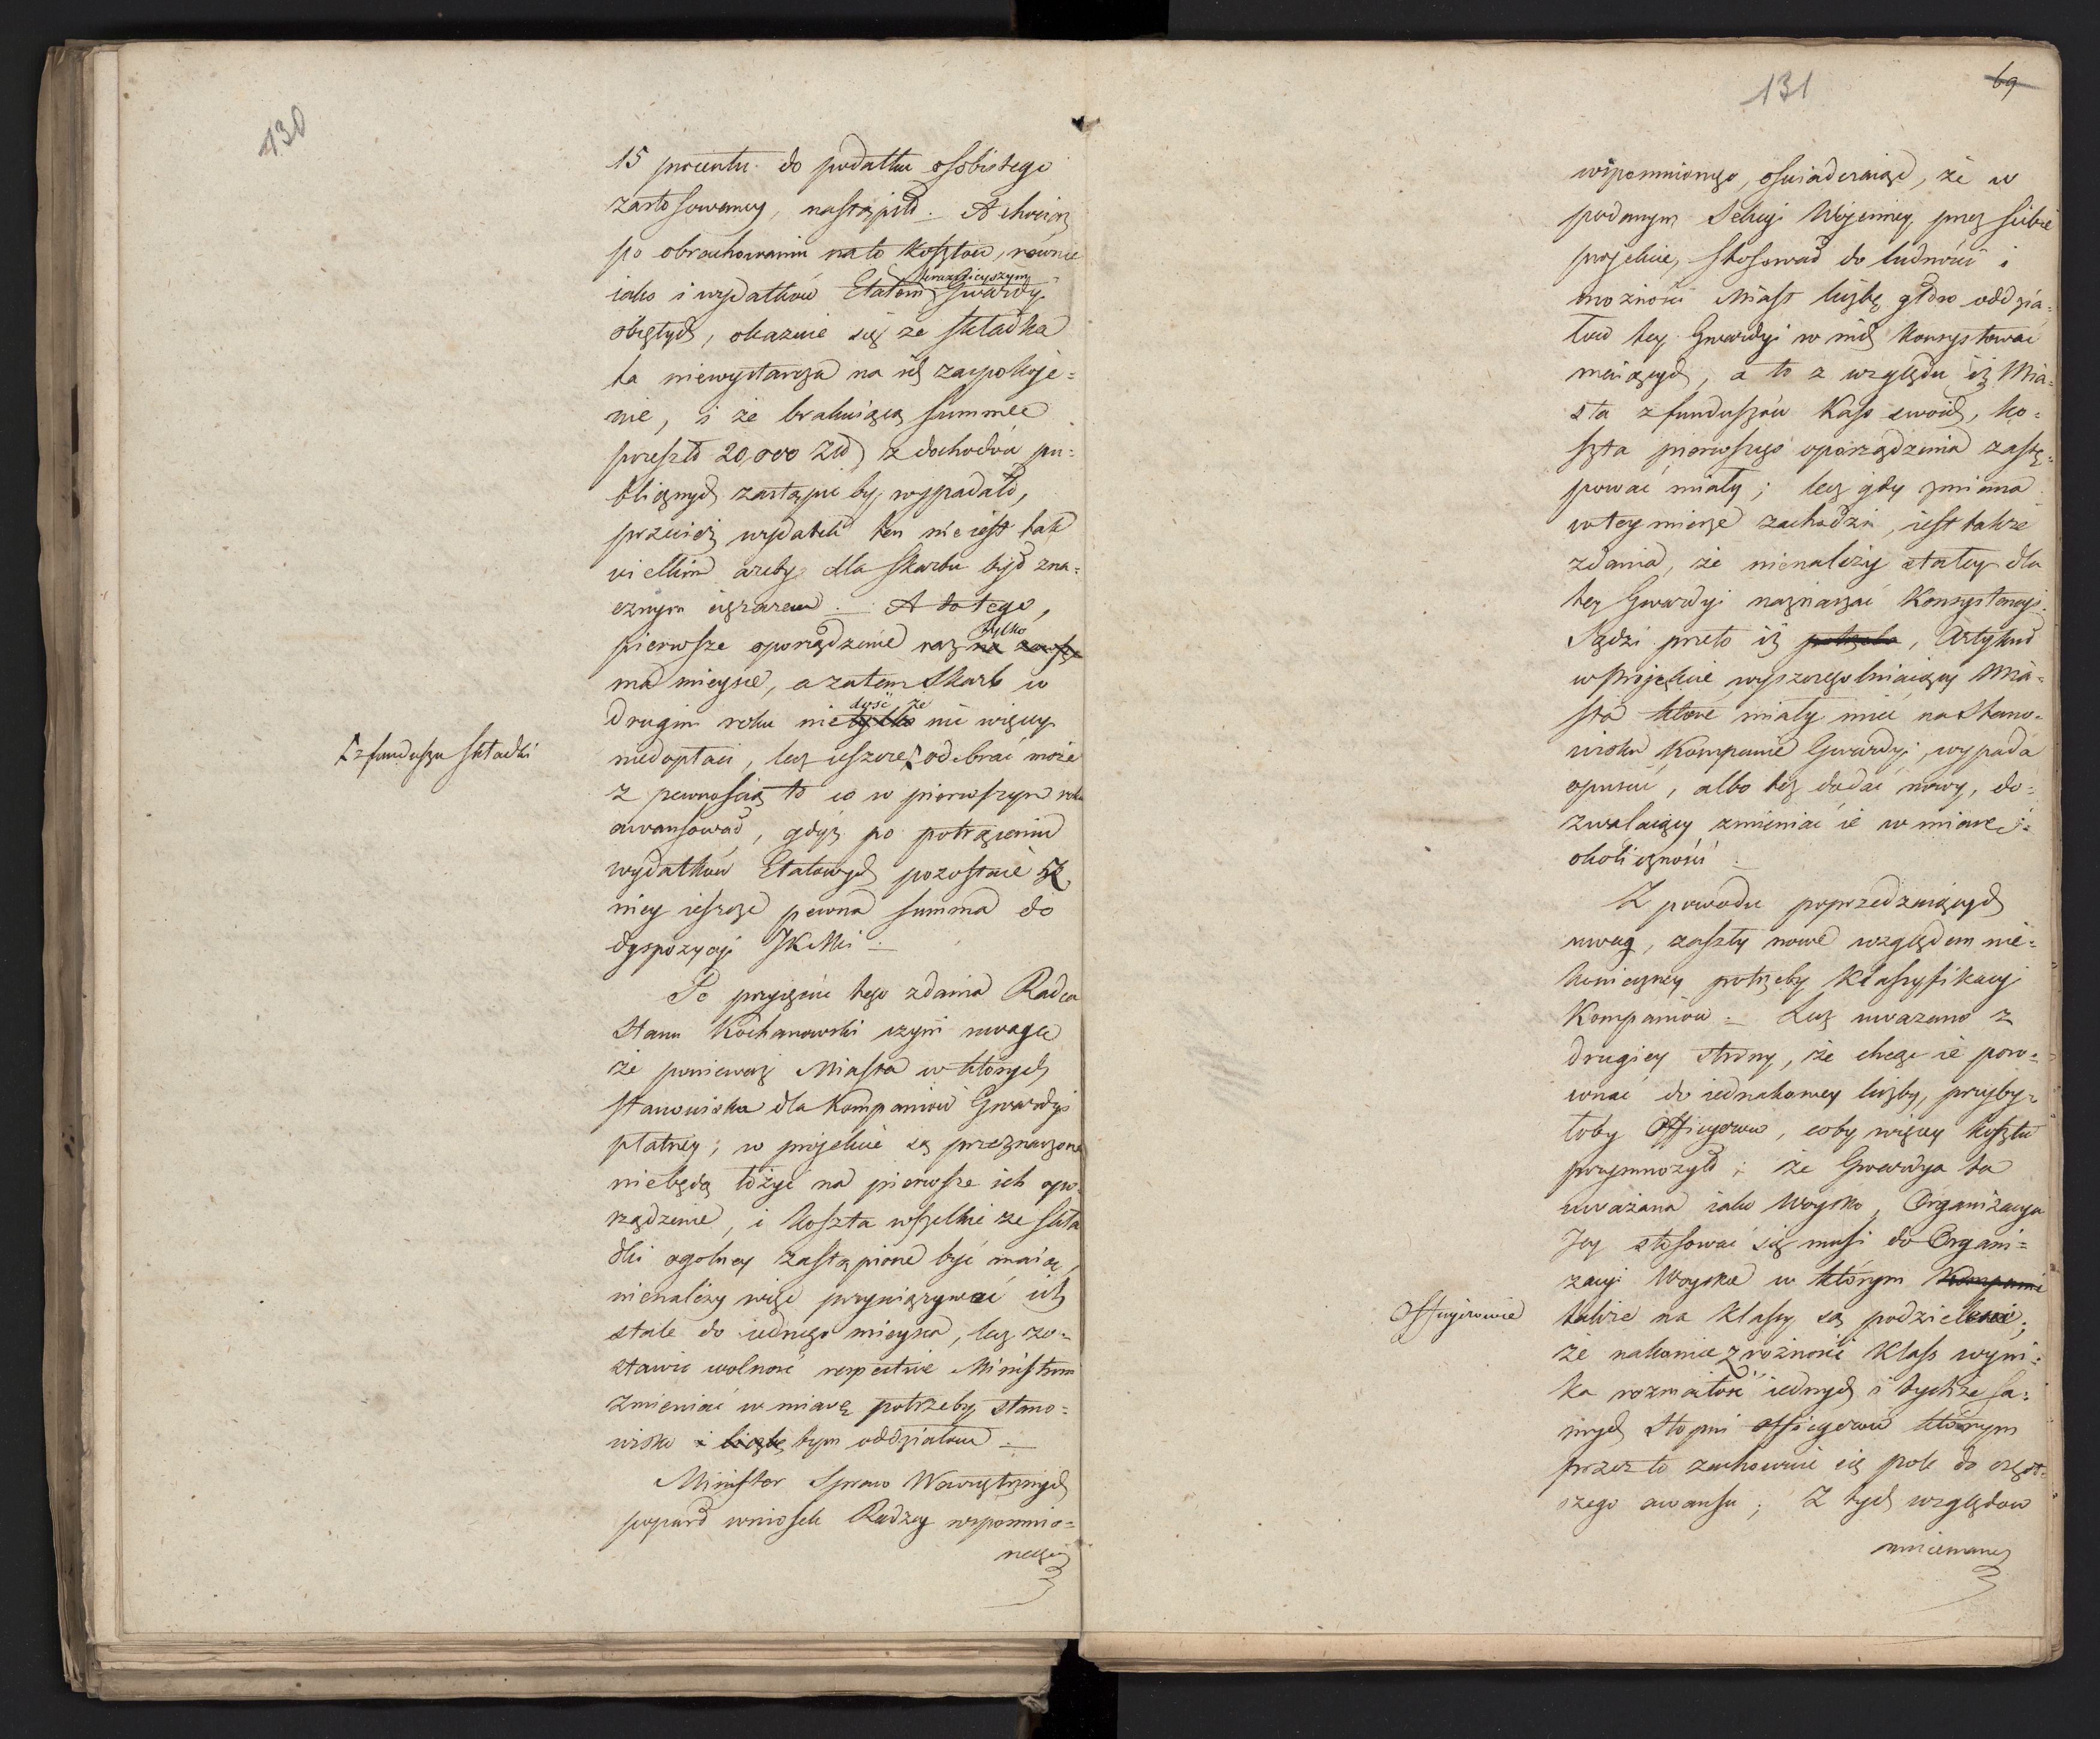 130
15 procentu do podatku osobistego
zastosowaney, nastąpił. A chociaż
po obrachowaniu na to kosztów, równie
iako i wydatków Etatem teraznieyszym Gwardyi
obiętych, okazuie się że składka
ta niewystarcza na ich zaspokoje=
nie, i że brakuiącą summę
przeszło 20,000 Zł z dochodów pu=
blicznych zastąpić by wypadało,
przecież wydatek ten nie iest tak
wielkim ażeby dla Skarbu był zna=
cznym ciężarem. A do tego,
pierwsze oporządzenie raz tylko na zawsze
ma mieysce, a zatem Skarb w
drugim roku nie tylko dość że nic więcey
niedopłaci, lecz ieszcze odebrać może
z funduszu składki
z pewnością to co w pierwszym roku
awansował, gdyż po potrąceniu
wydatków Etatowych pozostaie z
niey ieszcze pewna summa do
dyspozycyi JKMci
Po przyięciu tego zdania Radca
Stanu Kochanowski czyni uwagę
że ponieważ Miasta w których
stanowiska dla kompaniów Gwardyi
płatney, w projekcie są przeznaczone
niebędą łożyć na pierwsze ich opo=
rządzenie, i koszta wszelkie ze skła
dki ogolney zastąpione być maią,
nienależy więc przywięzywać ich
stale do iednego mieysca, lecz zo=
stawić wolność respective Ministrom
zmieniać w miarę potrzeby stano=
wisko i liczbę tym oddziałom
Minister Spraw Wewnętrznych
poparł wniosek Radzcy wspomnio=
nego
131
69
wspomnionego, oświadczaiąc, że w
podanym Sekcyi Woienney przez siebie
projekcie, stosował do ludności i
możności Miast liczbę głów oddzia=
łów tey Gwardyi w nich konsystować
maiących, a to z względu iż Mia=
sta z funduszów Kass swoich, ko=
szta pierwszego oporządzenia zastę=
pować miały; lecz gdy zmiana
w tey mierze zachodzi, iest także
zdania, że nienależy stałey dla
tey Gwardyi naznaczać konsystencyi.
Sądzi przeto iż potrzeba, Artykuł
w projekcie wyszczegolniaiący Mia=
sta które miały mieć na stano=
wisku Kompanie Gwardyi, wypada
opuścić, albo też dodać nowy, do=
zwalaiący zmieniać ie w miarę
okoliczności
Z powodu poprzedzaiących
uwag, zaszły nowe względem nie=
konieczney potrzeby klassyfikacyi
Kompaniów. Lecz uważano z
drugiey strony, że chcąc ie poro=
wnać do iednakowey liczby, przyby=
łoby Officyerów, coby więcey kosztu
przymnożyło; że Gwardya ta
uważana iako Woysko, Organizacya
Jey stosować się musi do Organi=
zacyi Woyska w którym Kompanie
Officyierowie
także na klassy są podzieleni;
że nakoniec z różności klass wyni=
ka rozmaitość iednych i tychże sa=
mych stopni officyerów którym
przez to zachowuie się pole do częst=
szego awansu; Z tych względów
mniemany